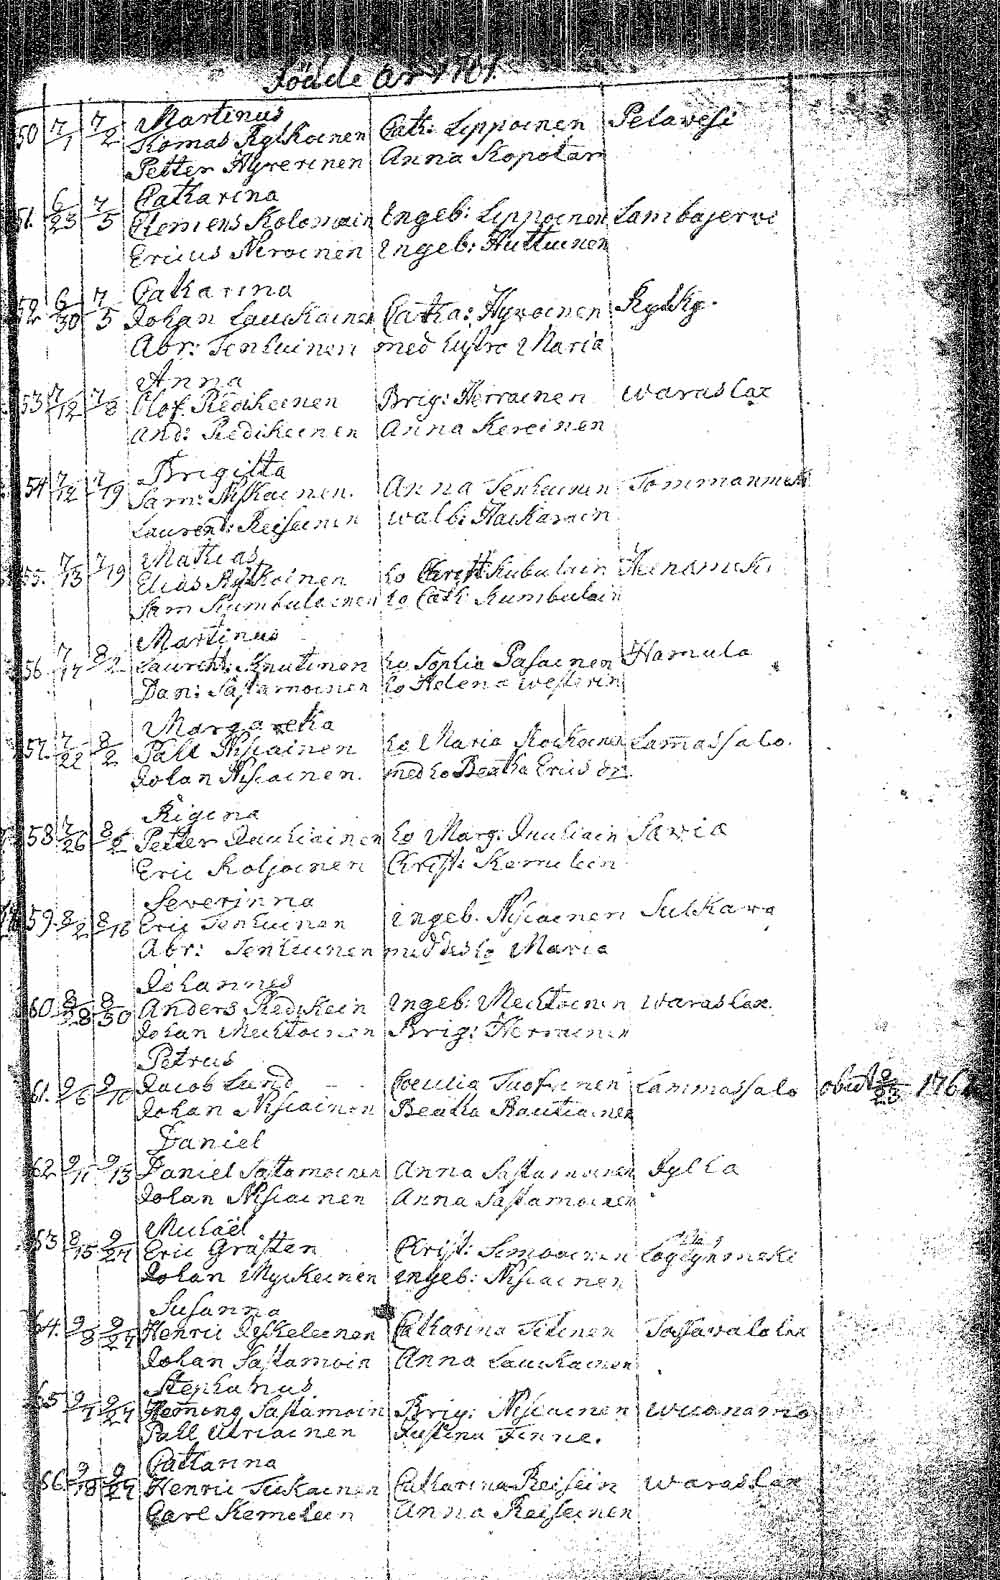 Födde År 1761.
50 7/1 7/2 Martinus
Tomas Rytkoinen Cath: Lippoinen Pelavesi
Petter Hyverinen Anna Kopotar
51. 6/23 7/5 Catharina
Clemens Kolomain Ingeb: Lippoinen Lambajerwi
Ericus Nivoinen Ingeb: Huttuinen
52. 6/30 7/5 Catharina
Johan Lauckainen Catha: Hyvoinen
Abr: Tenhuinen med hustro Maria
53 7/12 7/8 Anna
Olof Redikeinen Brig: Herrainen waraslax
And: Redikeinen Anna Kereinen
54 7/12 7/19 Brigitta
Sam: Niskainen. Anna Tenhuinen
Laurent: Reiseinen walb:
55. 7/13 7/19 Mathias
Elias Rytkoinen ho Christ
Sam Kumbulainen ho Cath: Kumbulain
56 7/17 8/2 Martinus
Laurent: Knutinen ho Sophia Pasainen Hamula
Dan: Sastamoinen ho Helena westerin
57. 7/22 8/2 Margareta
Påll Nisiainen ho Maria Lammassalo.
Johan Nisiainen. med ho Beatha Ericis dr.
58 7/26 8/2 Rigina
Petter Dauliainen ho Marg: Dauliain Savia
Eric Koljoinen Christ: Kemilein
59. 8/2 8/16 Severinna
Eric Tenhuinen ingeb. Nisiainen Sulkava
Abr: Tenhuinen med des ho Maria
60. 8/28 8/30 Johannes
Anders Redikein Ingeb: Mechtoinen waraslax.
Johan Mechtoinen Brig: Herrainen
61. 9/6 9/10 Petrus
Jacob Lund Coecilia Lammassalo obiit 9/23 176
Johan Nisiainen Beatha Rautiainen
62 9/11 9/13 Daniel
Daniel Sastamoinen Anna Sastamoinen Jylla
Johan Nisiainen Anna Sastamoinen
63 8/15 9/27 Michaël
Eric Gråsten Christ: Simoinen
Johan Myckeinen ingeb: Nisiainen
64. 9/8 9/27 Susanna
Henric Jeskeleinen Catharina Titinen
Johan Sastamoin Anna Lauckainen
65 9/7 9/27 Stephanus.
Hemming Sastamoin Brig: Nisiainen
Påll Utriainen Justina Finne.
66. 9/18 9/27 Catharina
Henric Tiukainen Catharina Reisein waraslax
Carl Kemelein Anna Reiseinen